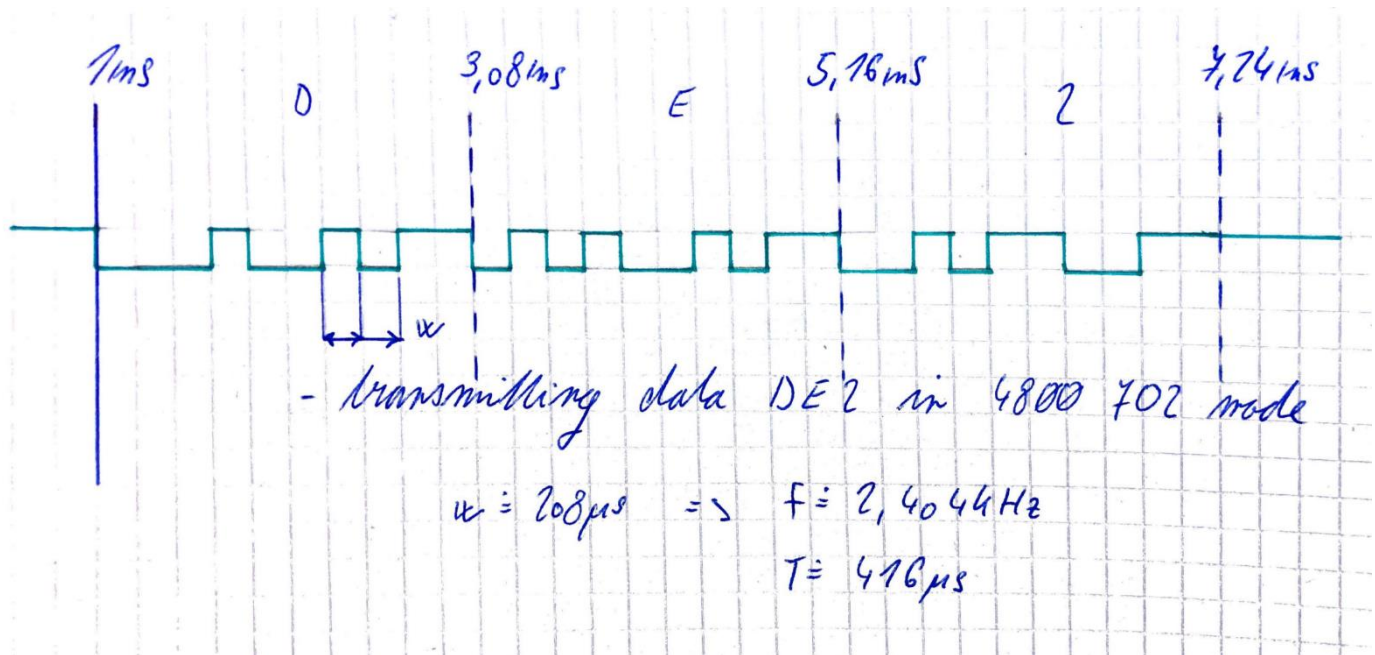 1ms 3,08ms 5,16ms 7,24ms
D E 2
w
- transmitting data DE2 in 4800 7O2 mode
w ≐ 208µs => f ≐ 2,404kHz
T ≐ 416µs